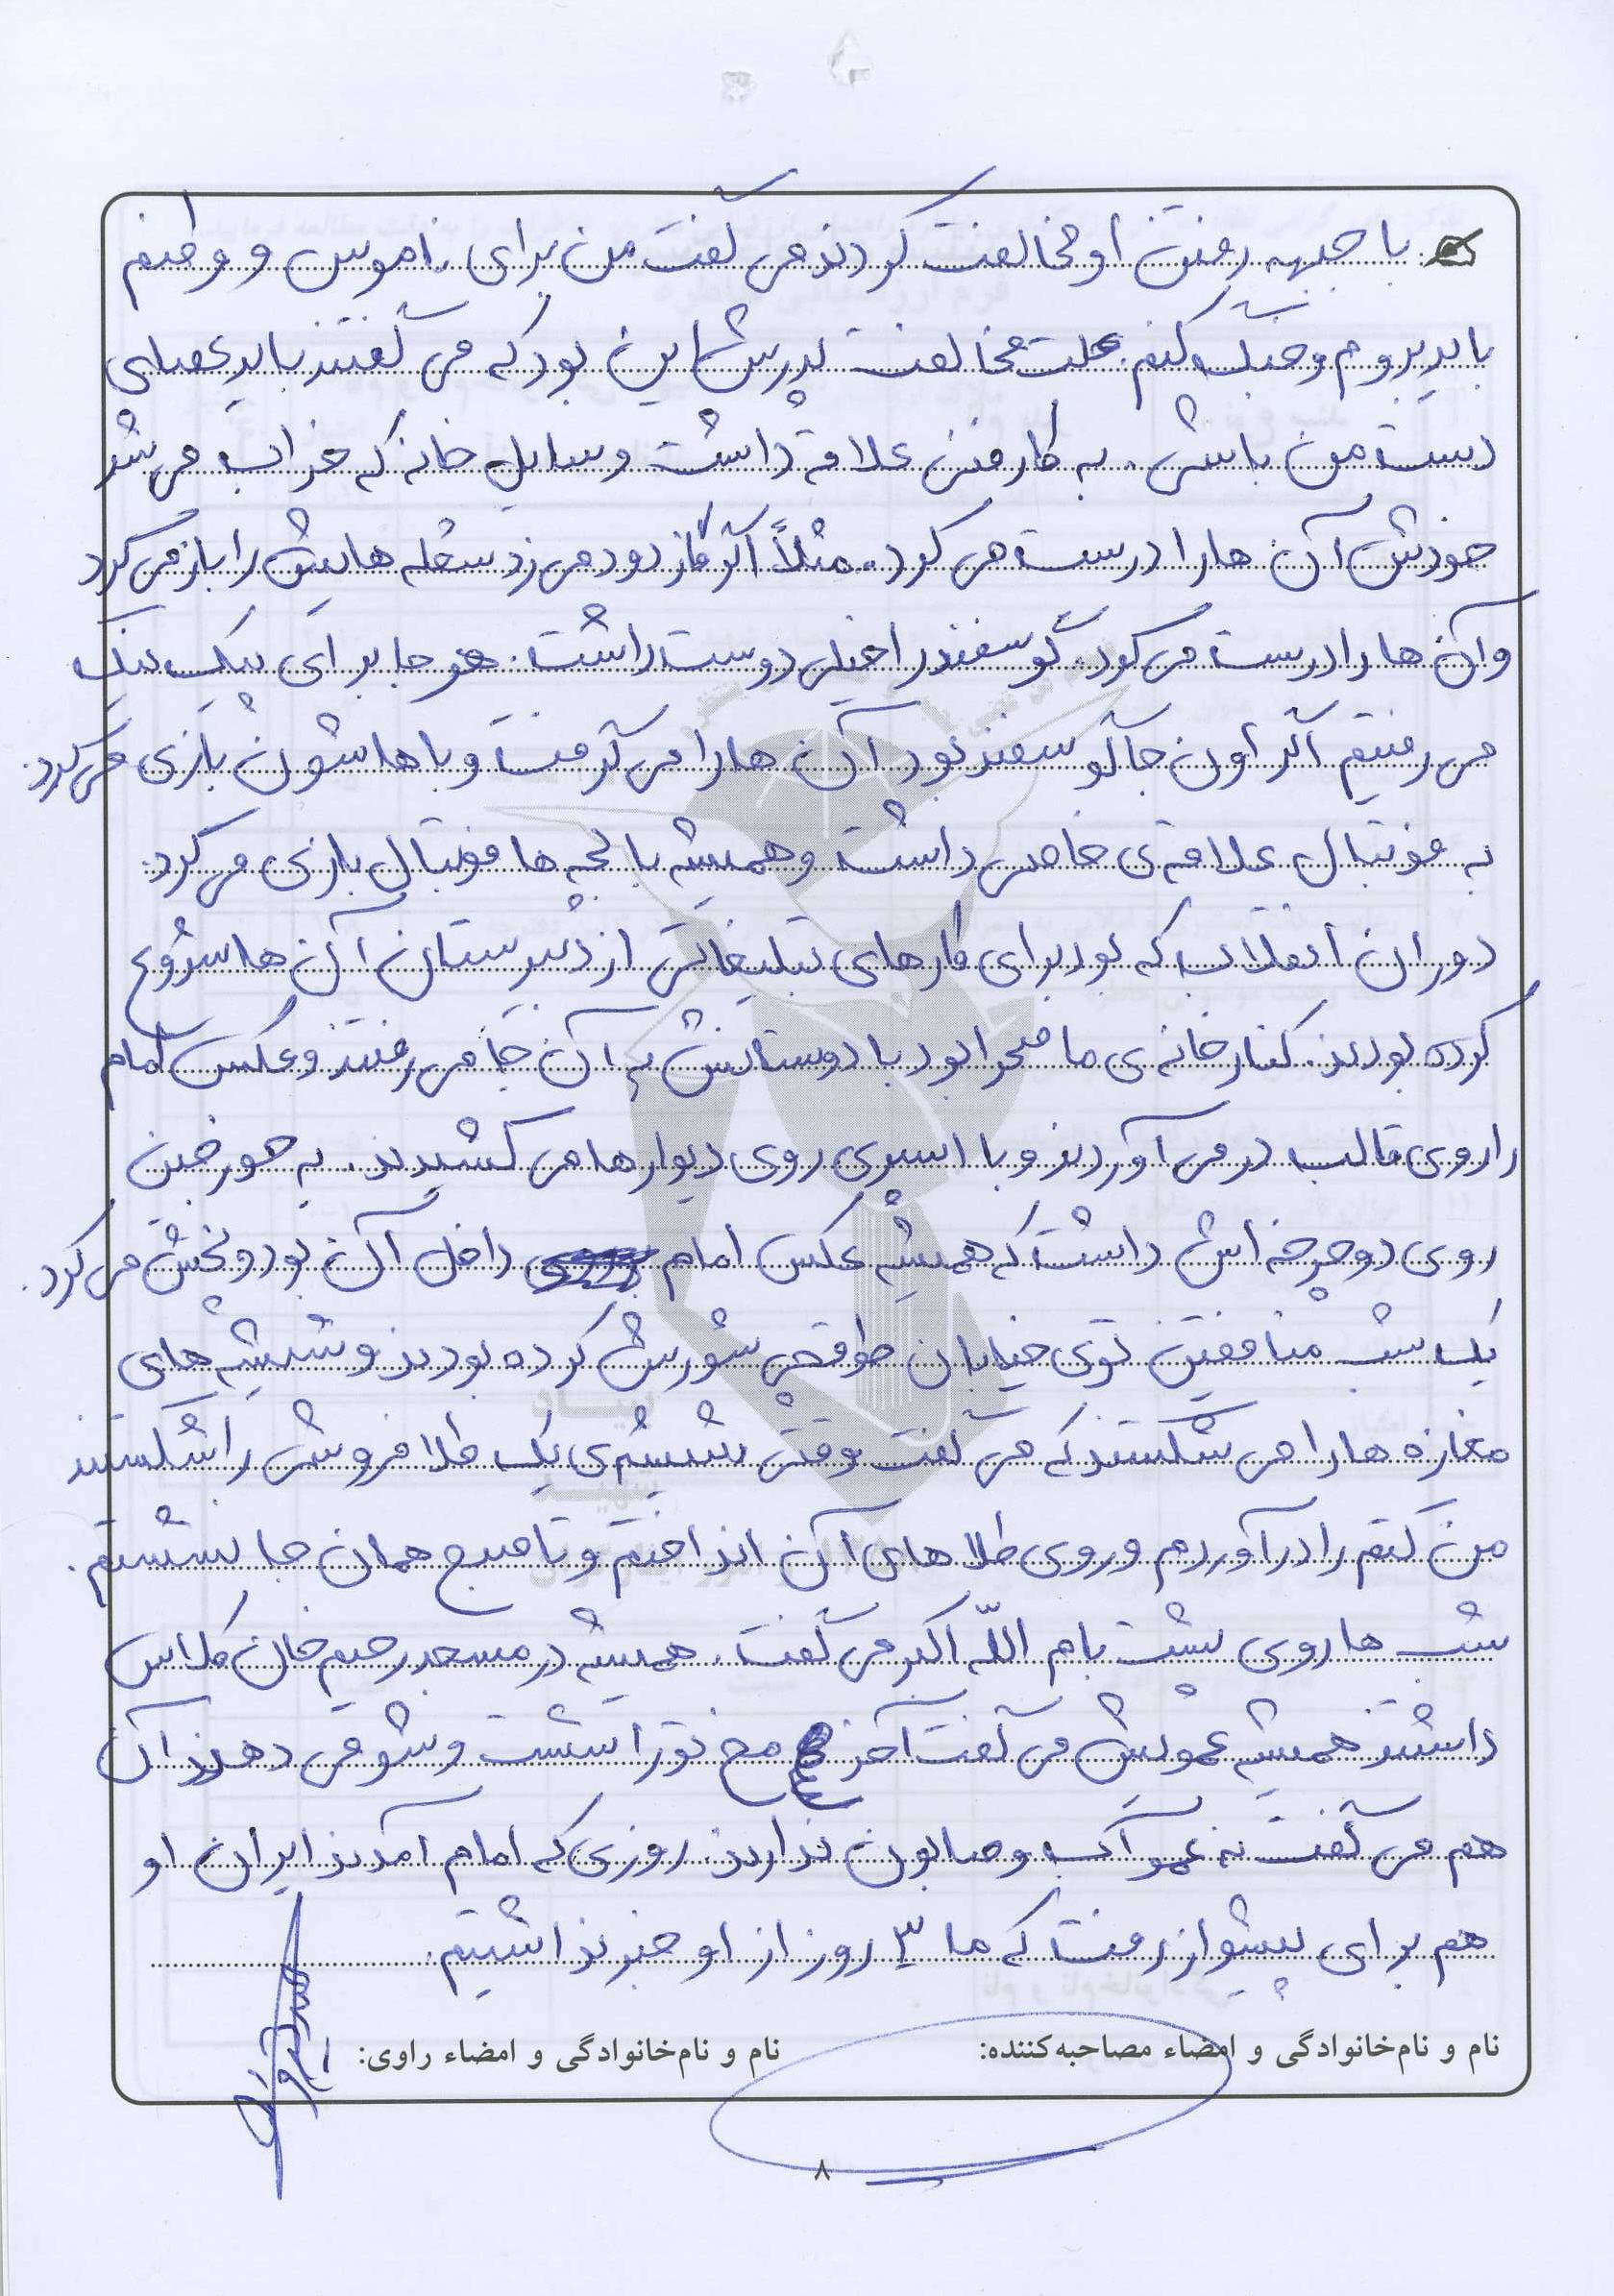 با جبهه رفتن او مخالفت کردند می گفت من برای ناموس و وطنم
باید بروم و جنگ کنم. علت مخالفت پدرش این بود که می گفتند باید عصای
دست من باشی. به کار فنی علاقه داشت وسایل خانه که خراب می شد
خودش آن ها را درست می کرد. مثلاً اگر گاز دود می زد شعله هایش را باز می کرد
و آن ها را درست می کرد. گوسفند را خیلی دوست داشت. هر جا برای پیک نیک
می رفتیم اگر اون جا گوسفند بود آن ها را می گرفت و باهاشون بازی می کرد.
به فوتبال علاقه ی خاصی داشت و همیشه با بچه ها فوتبال بازی می کرد.
دوران انقلاب که بود برای کارهای تبلیغاتی از دبیرستان آن ها شروع
کرده بودند. کنار خانه ی ما صحرا بود با دوستانش به آن جا می رفتند و عکس امام
را روی قالب در می آوردند و با اسپری روی دیوارها می کشیدند. یه خورجین
روی دوچرخه اش داشت که همیشه عکس امام داخل آن بود و پخش می کرد.
یک شب منافقین توی خیابان طوقچی شورش کرده بودند و شیشه های
مغازه ها را می شکستند که می گفت وقتی شیشه ی یک طلا فروشی را شکستند
من کتم را در آوردم و روی طلا های آن انداختم و تا صبح همان جا نشستم.
شب ها روی پشت بام الله اکبر می گفت. همیشه در مسجد رحیم خان کلاس
داشتند همیشه عمویش می گفت آخر مخ تو را شست و شو می دهند آن
هم می گفت نه عمو آب و صابون ندارند. روزی که امام آمدند ایران او
هم برای پیشواز رفت که ما ۳ روز از او خبر نداشتیم.
نام و نام‌خانوادگی و امضاء مصاحبه‌کننده:
نام و نام‌خانوادگی و امضاء راوی:
۸